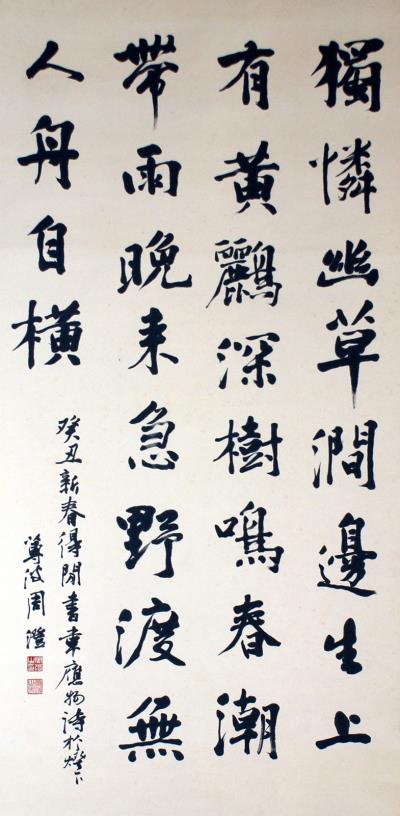 獨憐幽草澗邊生上
有黃鸝深樹鳴春潮
帶雨晚來急野渡無
人舟自橫
癸丑新春得閒書韋應物詩於燈下
蓴波周澄